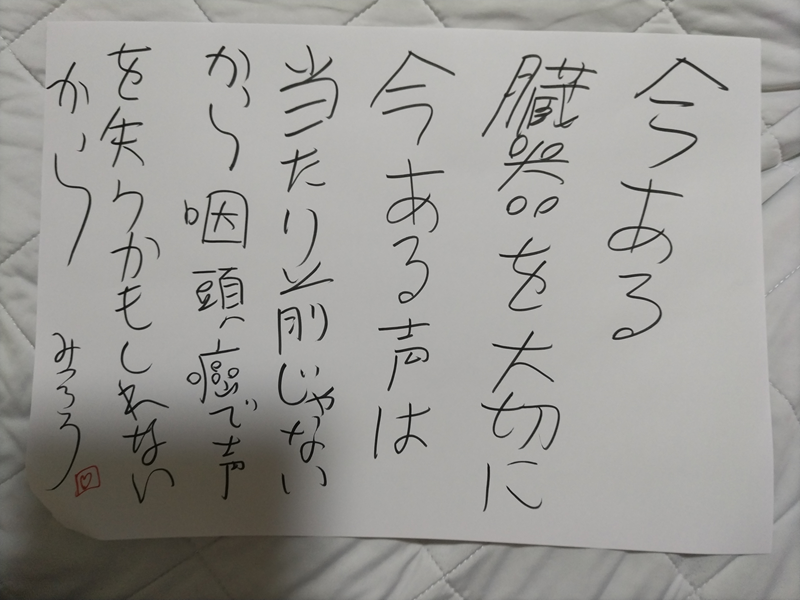 今ある
臓器を大切に
今ある声は
当たり前じゃない
から咽頭癌で声
を失うかもしれない
から
みつろう